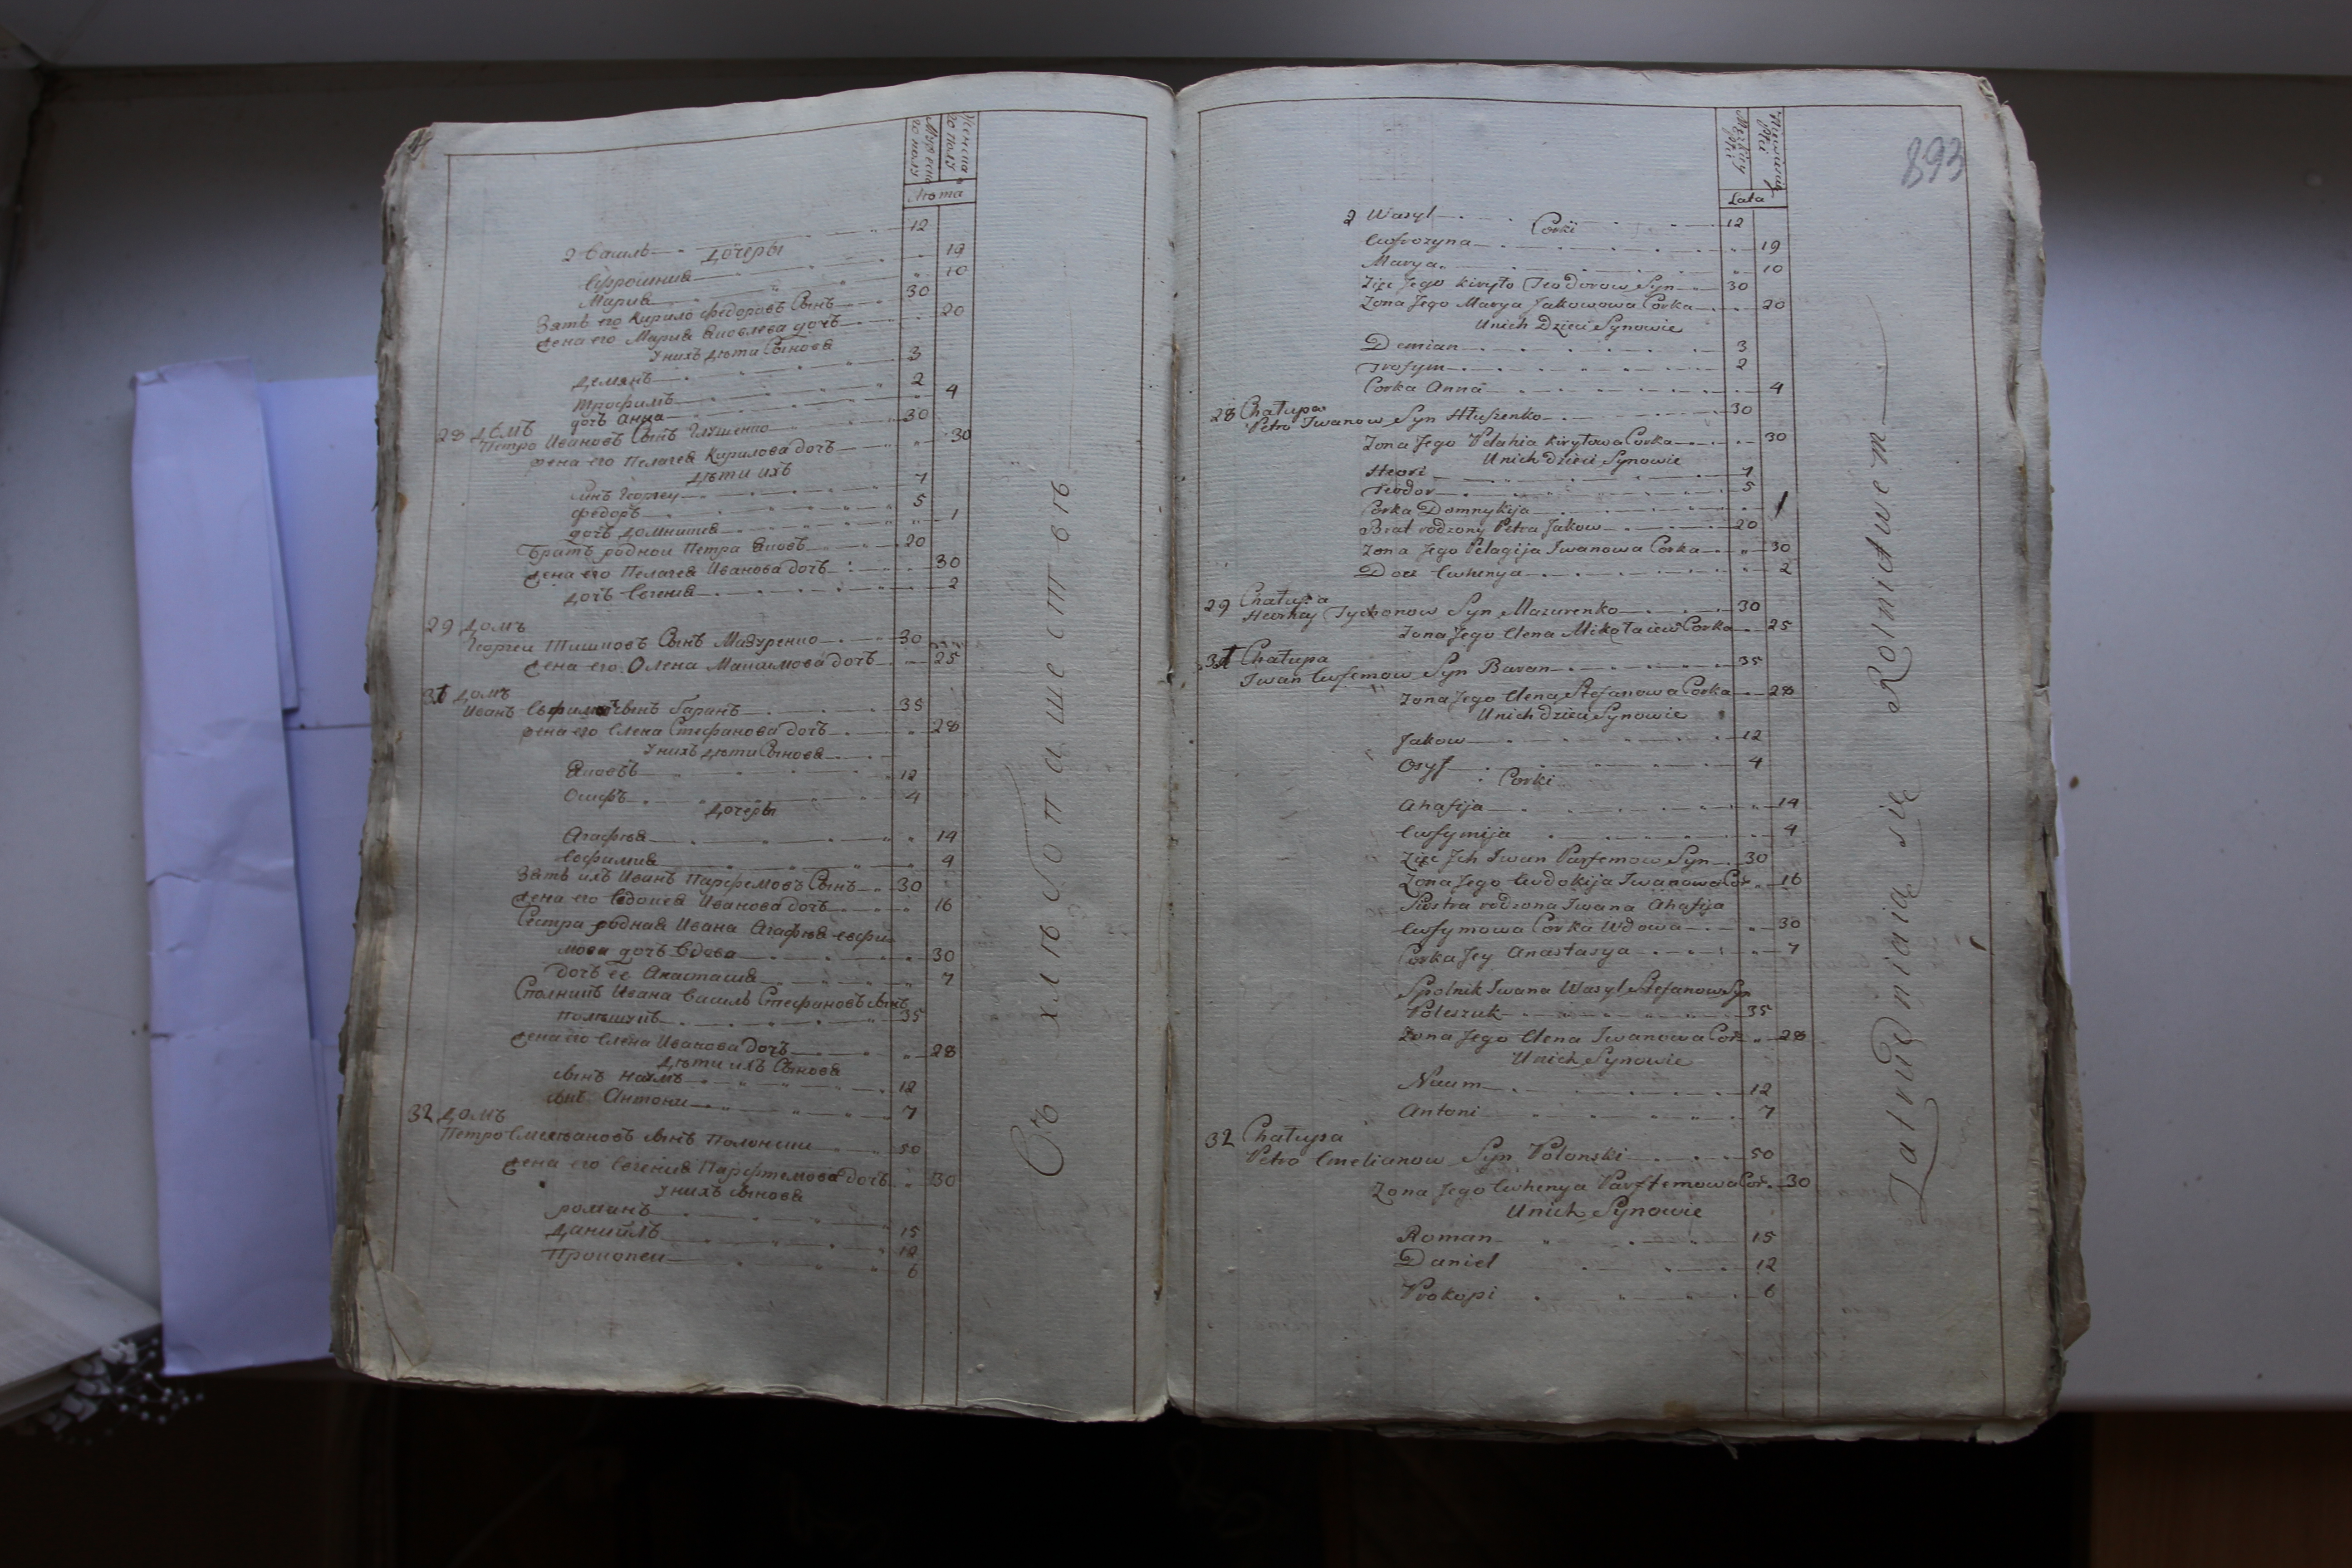 Мужеска го полу
Женска го полу
Лѣта
2 Василь 12
Дочеры
Ефросиния 19
Мария 10
Зять его Кирило Федоровъ Сынъ 30
жена его Мария Яковлева дочъ 20
Унихъ дѣти Сынова
Демянъ 3
Трофимъ 2
дочъ Анна 4
28 домъ
Петро Ивановъ Сынъ Глушенко 30
жена его Пелагея Кирилова дочъ 30
дѣти ихъ
Синъ Георгеи 7
Федоръ 5
дочъ Домникия 1
Братъ родной Петра Яковъ 20
жена его Пелагея Иванова дочъ 30
дочъ Евгения 2
29 домъ
Георгеи Тишковъ Сынъ Мазуренко 30
жена его Олена Максимова дочъ 25
31 домъ
Иванъ Сынъ Баранъ 35
жена его Елена Стефанова дочъ 28
Унихъ дѣти Сынова
Яковъ 12
Осифъ 4
Дочеры
Агафия 14
Евфимия 9
Зять ихъ Иванъ Парфемовъ Сынъ 30
жена его Евдокия Иванова дочъ 16
Сестра родная Ивана Агафия Евфи
мова дочъ вдова 30
дочъ ее Анастасия 7
Сполникъ Ивана Василь Стефановъ сынъ
Полешукъ 35
жена его Елена Иванова дочъ 28
дѣти ихъ Сынова
сынъ Наумъ 12
сынъ Антони 7
32 домъ
Петро Емельяновъ сынъ Полонски 50
жена его Евгения Парфтемова дочъ 30
Унихъ сынова
Романъ 15
Данийлъ 12
Прокопеи 6
Съ хлѣбопашествѣ
893
Męzkiey płci
Lata
2 Wasyl 12
Corki
Ewfrozyna 19
Marya 10
Zięc Jego Kiryło Teodorow Syn 30
Zona Jego Marya Jakowowa Corka 20
Unich Dzieci Synowie
Demian 3
Trofym 2
Corka Anna 4
28 Chałupa
Petro Iwanow Syn Hłuszenko 30
Zona Jego Pelahia Kiryłowa Corka 30
Unich dzieci Synowie
Heori 7
Teodor 5
Corka Domnykija 1
Brat rodzony Petra Jakow 20
Zona Jego Pelagija Iwanowa Corka 30
Doci Ewhenya 2
29 Chałupa
Heorhey Tychonow Syn Mazurenko 30
Zona Jego Elena Mikołaiew Corka 25
31 Chałupa
Iwan Ewfemow Syn Baran 35
Zona Jego Elena Stefanowa Corka 28
Unich dzieci Synowie
Jakow 12
Osyf 4
Corki
Ahafija 14
Ewfymija 9
Zięc Jch Iwan Parfemow Syn 30
Zona Jego Ewdokija Iwanowa Cor 16
Siostra rodzona Iwana Ahafija
Ewfymowa Corka Wdowa 30
Corka Jey Anastasya 7
Spolnik Iwana Wasyl Stefanow Syn
Poleszuk 35
Zona Jego Elena Iwanowa Cor 28
Unich Synowie
Naum 12
Antoni 7
32 Chałupa
Petro Emelianow Syn Polonski 50
Zona Jego Ewhenya Parftemowa Cor. 30
Unich Synowie
Roman 15
Daniel 12
Prokopi 6
Zatrudniaią się Rolnictwem